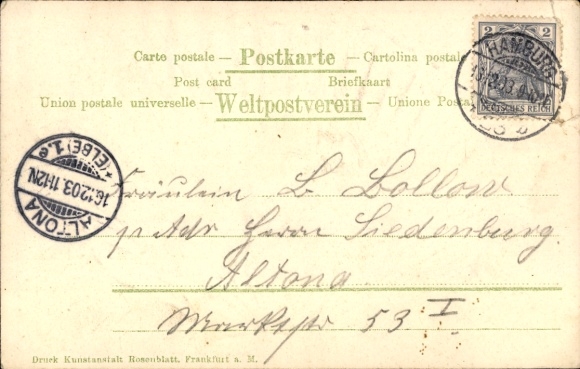 Carte postale — Postkarte — Cartolina postale
Post card Briefkaart
Union postale universelle — Weltpostverein — Unione Posta
2 2
HAMBURG
DEUTSCHES REICH
ALTONA
16.12.03. 11-12N.
* (ELBE) 1.e
Fräulein B. Bollow
p. Adr Herrn Siedenburg
Altona.
Marktstr 53 I
Druck Kunstanstalt Rosenblatt, Frankfurt a. M.